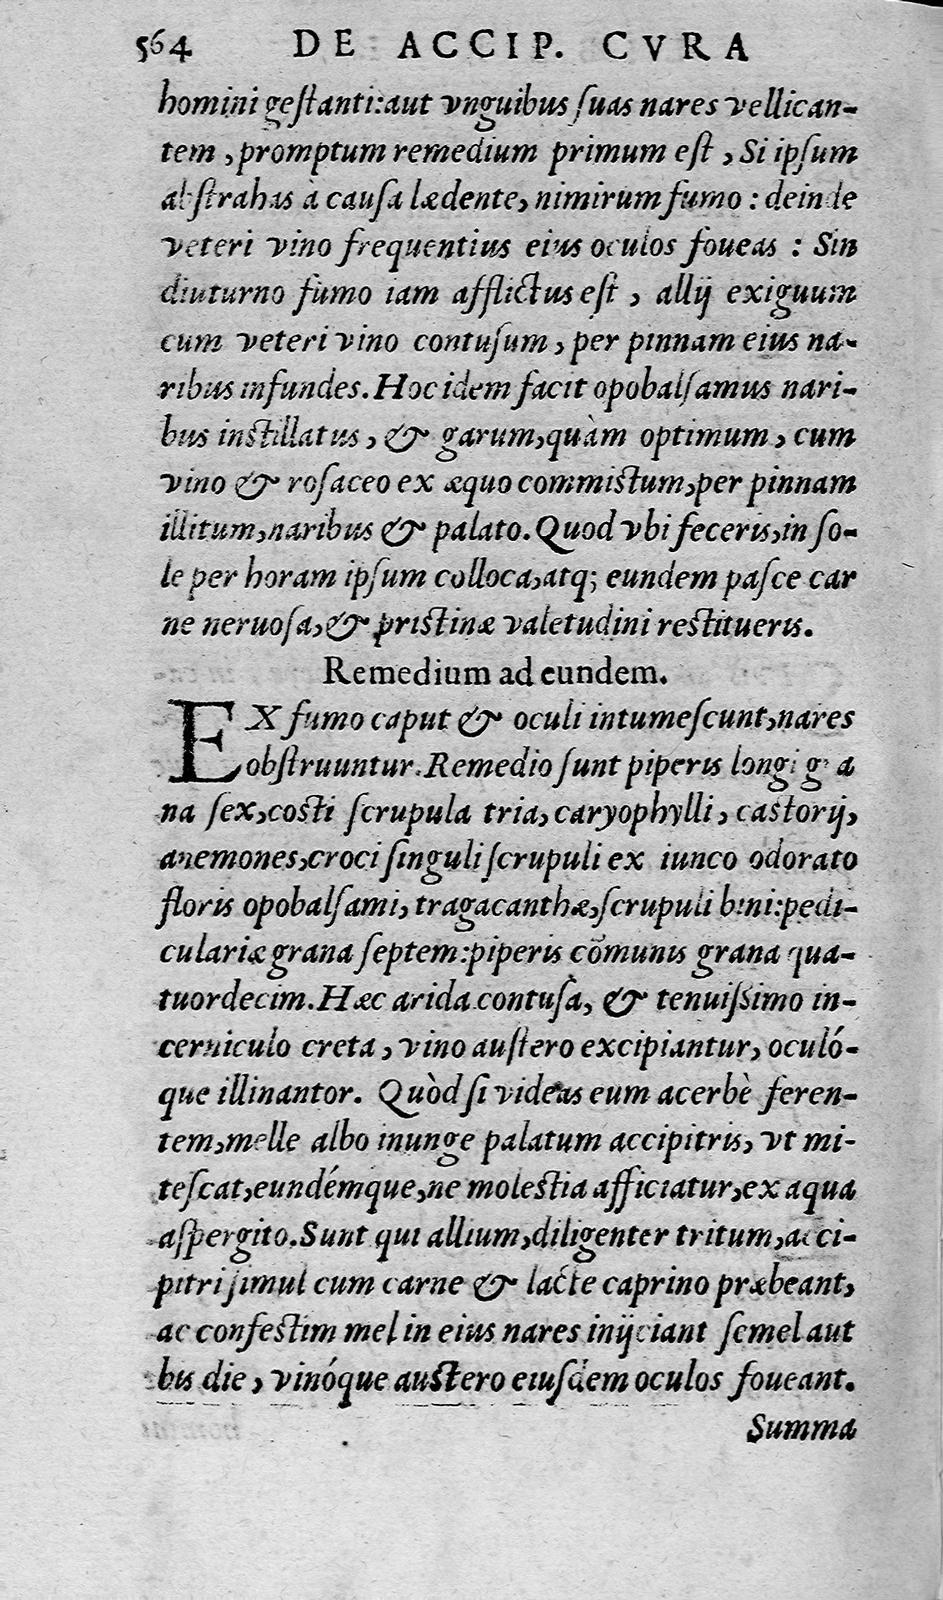 564 DE ACCIP. CVRA
homini gestanti: aut vnguibus suas nares vellican-
tem, promptum remedium primum est, Si ipsum
abstrahas à causa lædente, nimirum fumo: deinde
veteri vino frequentius eius oculos foueas: Sin
diuturno fumo iam afflictus est, allij exiguum
cum veteri vino contusum, per pinnam eius na-
ribus infundes. Hoc idem facit opobalsamus nari-
bus instillatus, & garum, quàm optimum, cum
vino & rosaceo ex æquo commistum, per pinnam
illitum, naribus & palato. Quod vbi feceris, in so-
le per horam ipsum colloca, atq; eundem pasce car
ne neruosa, & pristinæ valetudini restitueris.
Remedium ad eundem.
EX fumo caput & oculi intumescunt, nares
obstruuntur. Remedio sunt piperis longi gra
na sex, costi scrupula tria, caryophylli, castorij,
anemones, croci singuli scrupuli ex iunco odorato
floris opobalsami, tragacanthæ, scrupuli bini: pedi-
culariæ grana septem: piperis cõmunis grana qua-
tuordecim. Hæc arida contusà, & tenuissimo in-
cerniculo creta, vino austero excipiantur, oculó-
que illinantor. Quòd si videas eum acerbè feren-
tem, melle albo inunge palatum accipitris, vt mi-
tescat, eundémque, ne molestia afficiatur, ex aqua
aspergito. Sunt qui allium, diligenter tritum, acci-
pitri simul cum carne & lacte caprino præbeant,
ac confestim mel in eius nares inijciant semel aut
bis die, vinóque austero eiusdem oculos foueant.
Summa